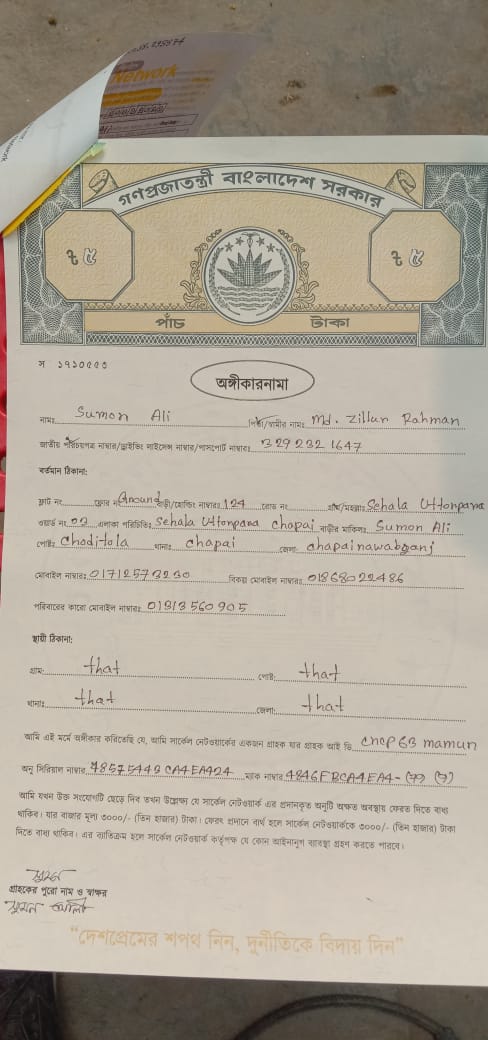 Network
গণপ্রজাতন্ত্রী বাংলাদেশ সরকার
৳ ৫ ৳ ৫
পাঁচ টাকা
অঙ্গীকারনামা
নামঃ Sumon Ali পিতা/স্বামীর নামঃ Md. Zillur Rahman
জাতীয় পরিচয়পত্র নাম্বার/ড্রাইভিং লাইসেন্স নাম্বার/পাসপোর্ট নাম্বারঃ 329 232 1647
বর্তমান ঠিকানা:
ফ্লাট নং ফ্লোর নং Ground বাড়ী/হোল্ডিং নাম্বারঃ 124 রোড নং গ্রাম/মহল্লাঃ Sehala Uttorpara
ওয়ার্ড নং 02 এলাকা পরিচিতিঃ Sehala Uttorpara chapai বাড়ীর মালিকঃ Sumon Ali
পোষ্টঃ choditola থানাঃ chapai জেলাঃ chapainawabganj
মোবাইল নাম্বারঃ 01712573230 বিকল্প মোবাইল নাম্বারঃ 01868022486
পরিবারের কারো মোবাইল নাম্বারঃ 01313560905
স্থায়ী ঠিকানা:
গ্রাম: that পোষ্ট: that
থানাঃ that জেলা: that
আমি এই মর্মে অঙ্গীকার করিতেছি যে, আমি সার্কেল নেটওয়ার্কের একজন গ্রাহক যার গ্রাহক আই ডি cncp63 mamun
অনু সিরিয়াল নাম্বার 48575443CA4EA424 ম্যাক নাম্বার 4846FBCA4EA4
আমি যখন উক্ত সংযোগটি ছেড়ে দিব তখন উল্লেক্ষ্য যে সার্কেল নেটওয়ার্ক এর প্রদানকৃত অনুটি অক্ষত অবস্থায় ফেরত দিতে বাধ্য
থাকিব। যার বাজার মূল্য ৩০০০/- (তিন হাজার) টাকা। ফেরৎ প্রদানে ব্যর্থ হলে সার্কেল নেটওয়ার্ককে ৩০০০/- (তিন হাজার) টাকা
দিতে বাধ্য থাকিব। এর ব্যতিক্রম হলে সার্কেল নেটওয়ার্ক কর্তৃপক্ষ যে কোন আইনানুগ ব্যবস্থা গ্রহণ করতে পারবে।
সুমন
গ্রাহকের পুরো নাম ও স্বাক্ষর
সুমন আলী
"দেশপ্রেমের শপথ নিন, দুর্নীতিকে বিদায় দিন"